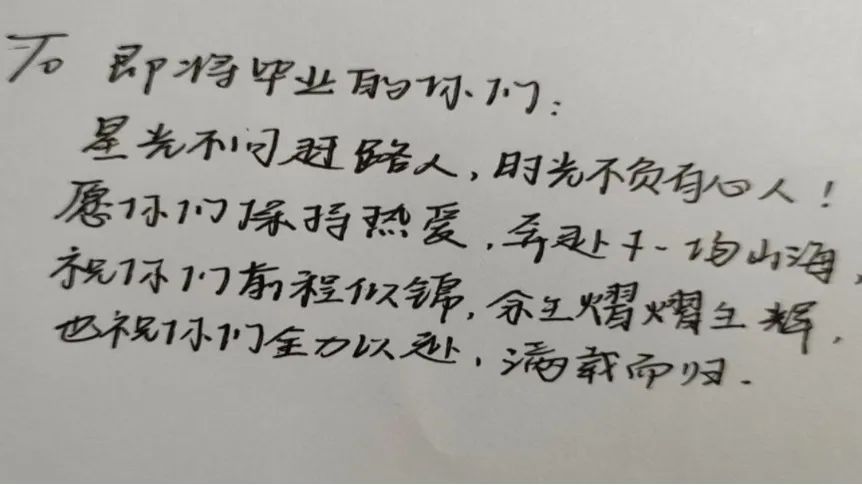 To 即将毕业的你们:
星光不问赶路人,时光不负有心人!
愿你们保持热爱,奔赴下一场山海,
祝你们前程似锦,余生熠熠生辉,
也祝你们全力以赴,满载而归.